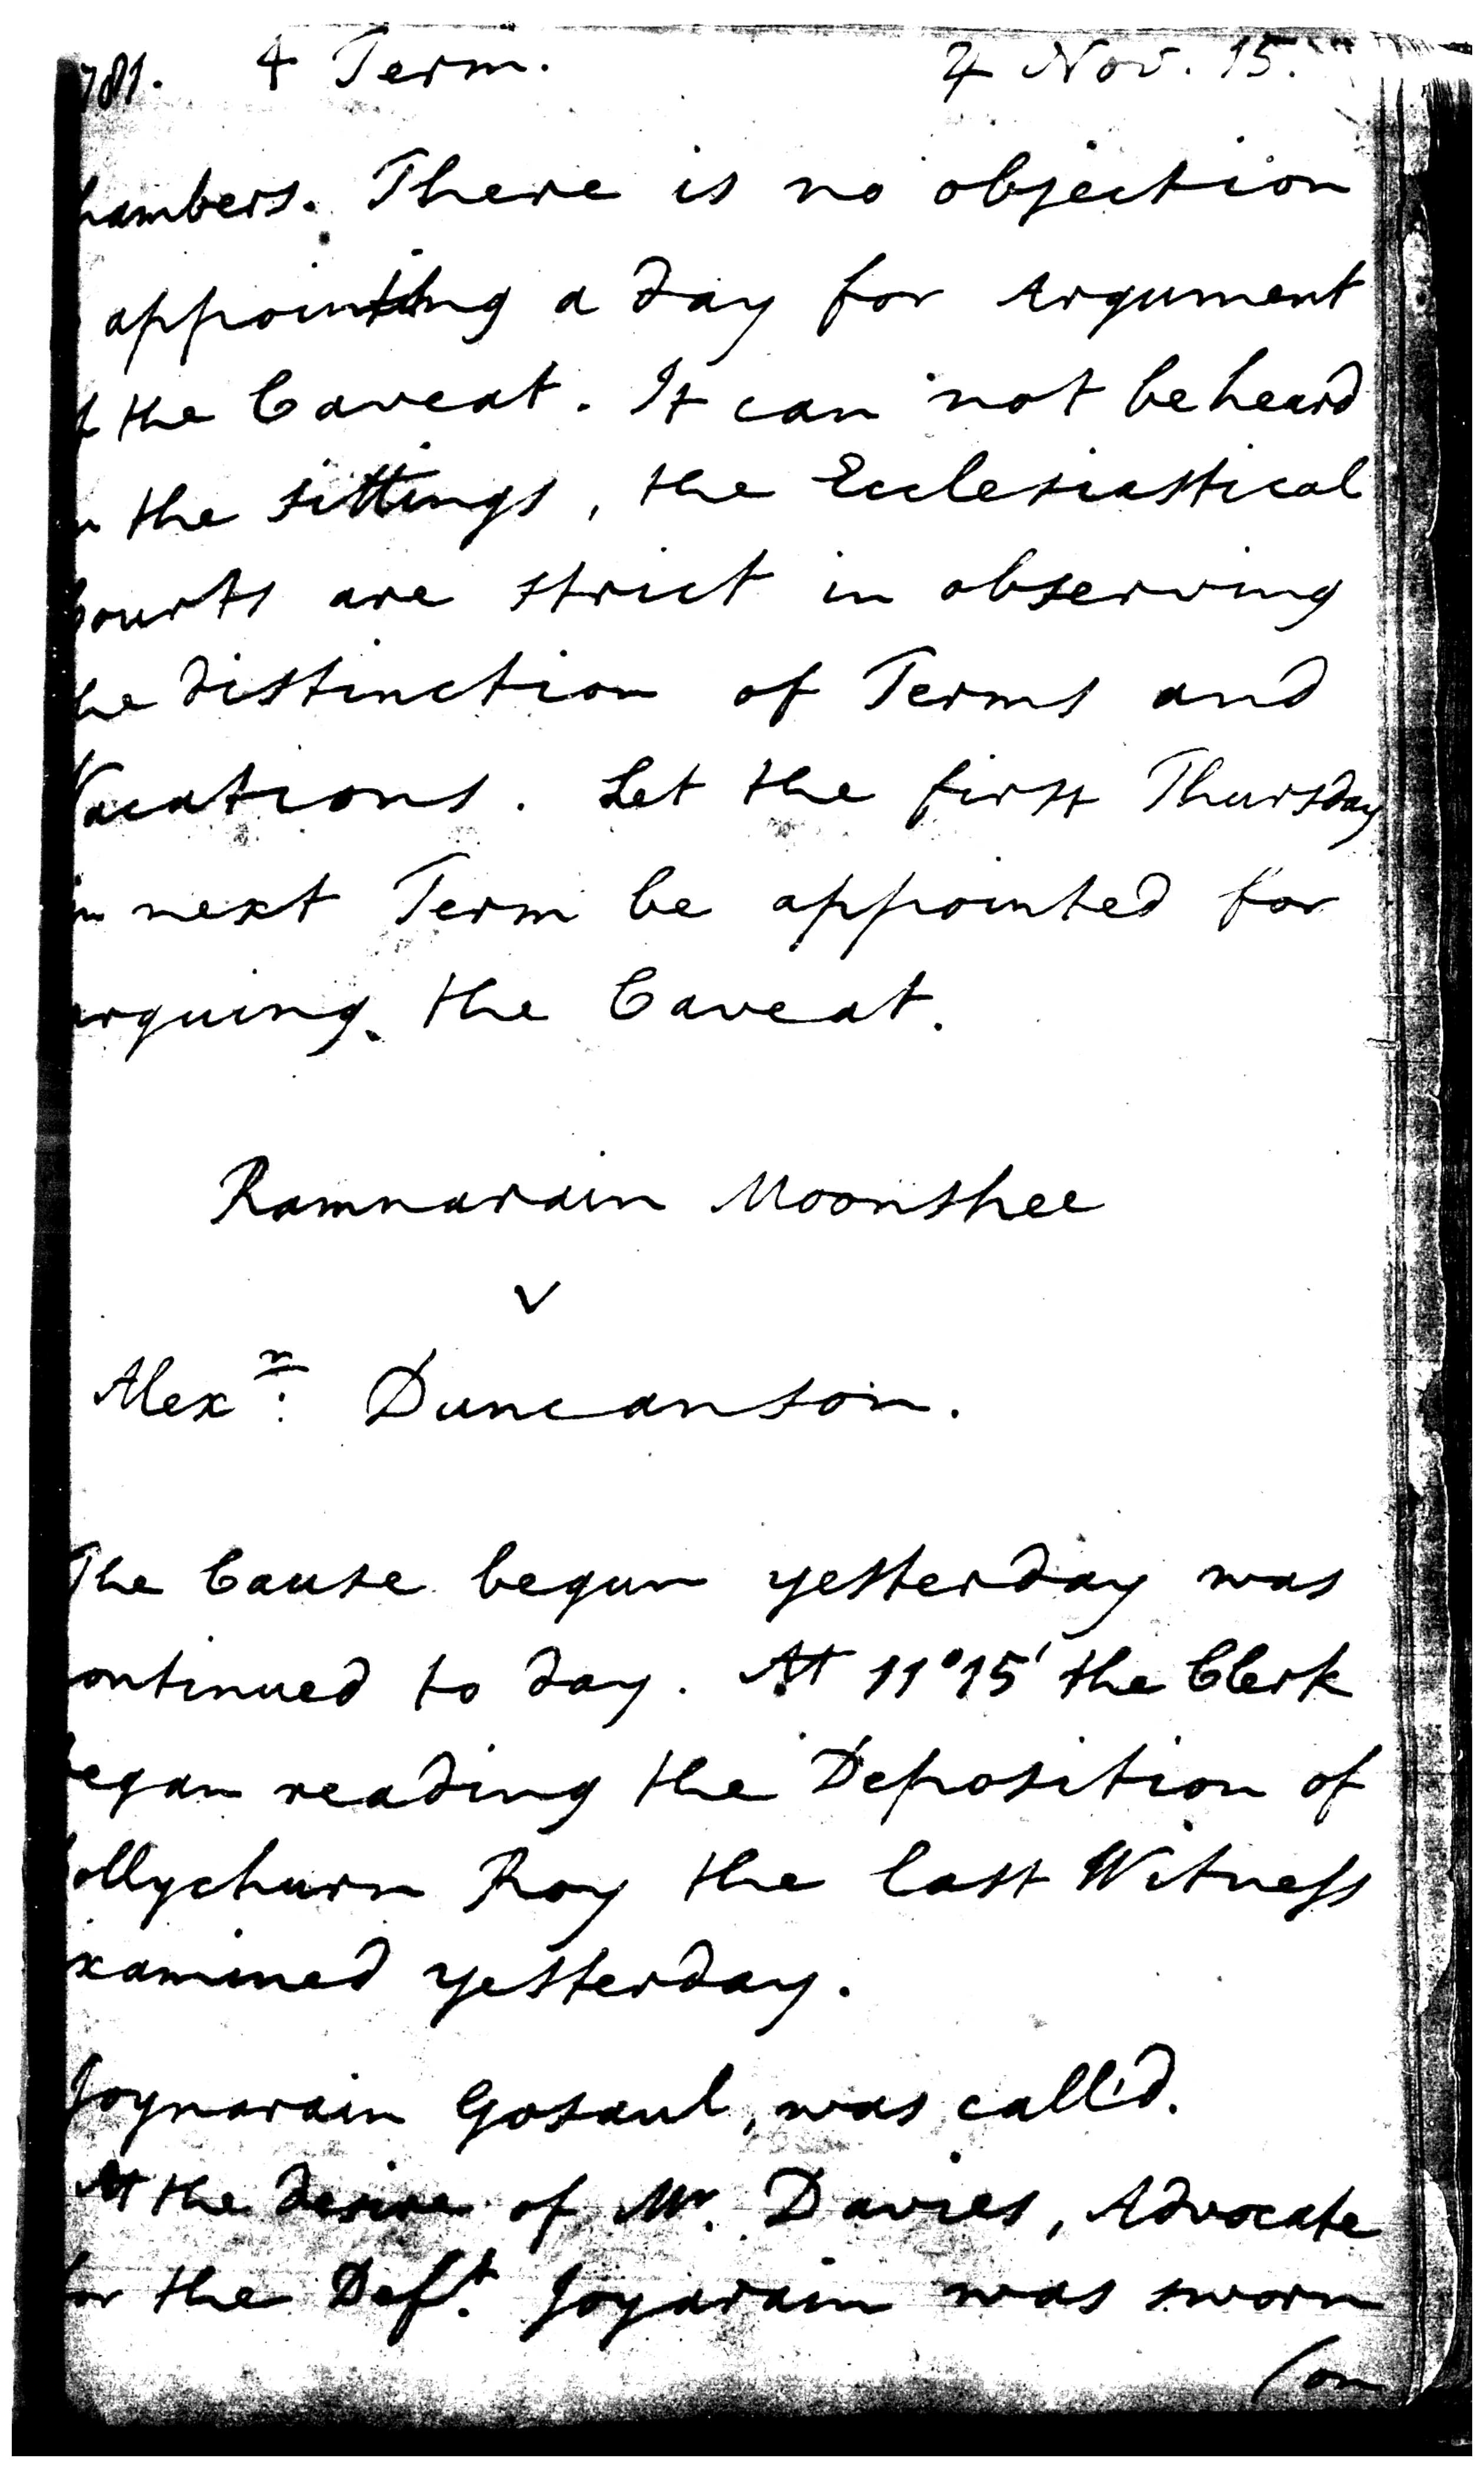 781. 4 Term. 4 Nov. 15.
hambers. There is no objection
appointing a day for Argument
f the Caveat. It can not be heard
the sittings, the Ecclesiastical
ourts are strict in observing
he distinction of Terms and
Vacations. Let the first Thursday
in next Term be appointed for
arguing the Caveat.
Ramnarain Moonshee
v
Alexr: Duncanson.
The Cause begun yesterday was
ontinued to day. At 11°15' the Clerk
egan reading the Deposition of
ollychurn Roy the last Witness
xamined yesterday.
Joynarain Gosaul, was call'd.
At the desire of Mr. Davies, Advocate
for the Deft. Joyarain was sworn
(on